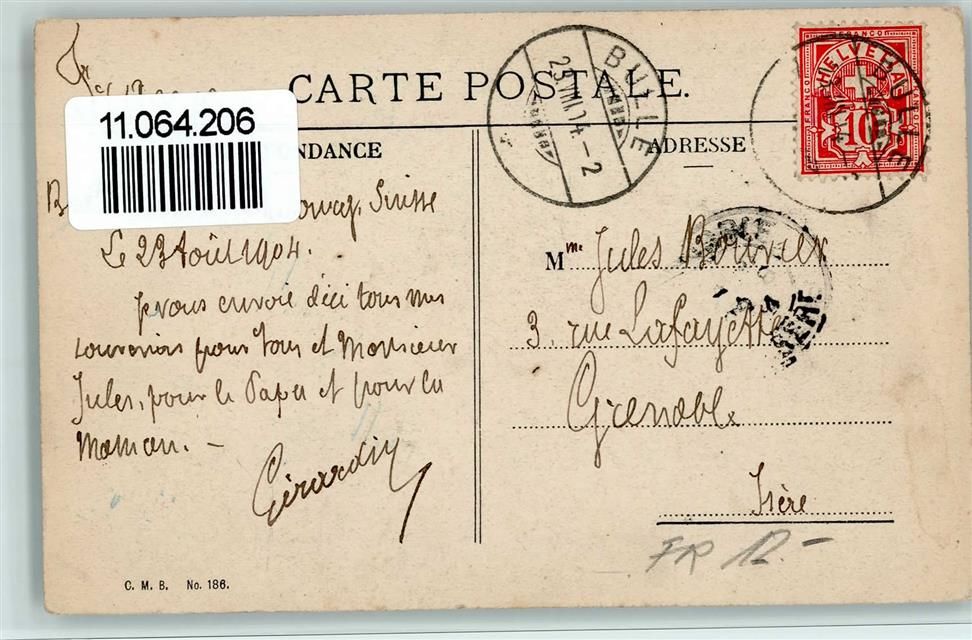 CARTE POSTALE.
11.064.206
NDANCE
ADRESSE
BULLE
23.VIII.04.-2
HELVETIA
FRANCO
10
BULLE
Suisse
Le 23 Août 1904.
Je vous envoie d'ici tous mes
souvenirs pour vous et Monsieur
Jules, pour le Papa et pour la
Maman. —
Girardin
Mme Jules Bouvier
3. rue Lafayette
Grenoble
Isère
ISÈRE
FR 12.-
C. M. B. No. 186.